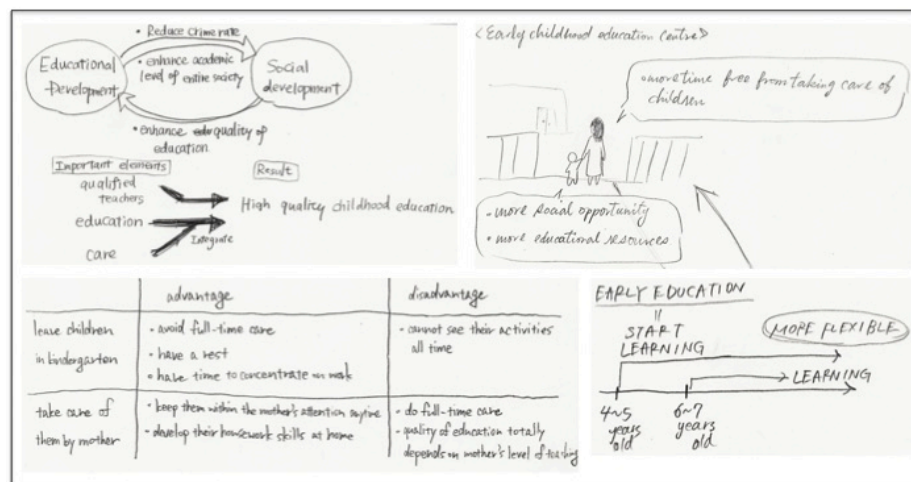 • Reduce crime rate
Educational
Development
• enhance academic
level of entire society
Social
development
• enhance quality of
education
Important elements
Result
qualified
teachers
High quality childhood education
education
Integrate
care
<Early childhood education centre>
• more time free from taking care of
children
• more social opportunity
• more educational resources
advantage
disadvantage
leave children
in kindergarten
• avoid full-time care
• have a rest
• have time to concentrate on work
• cannot see their activities
all time
take care of
them by mother
• keep them within the mother's attention anytime
• develop their housework skills at home
• do full-time care
• quality of education totally
depends on mother's level of teaching
EARLY EDUCATION
=
START
LEARNING
MORE FLEXIBLE
LEARNING
4~5
years
old
6~7
years
old